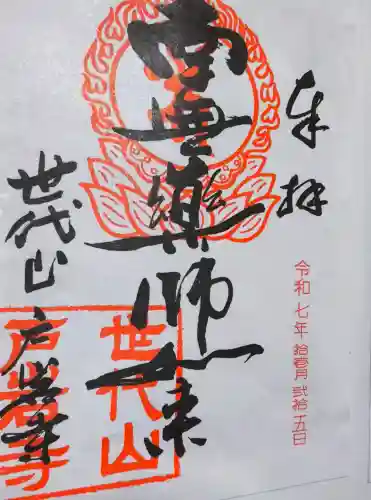 奉拝
令和七年拾壹月弐拾五日
南無薬師如来
世代山
戸岩寺
世代山
戸岩寺